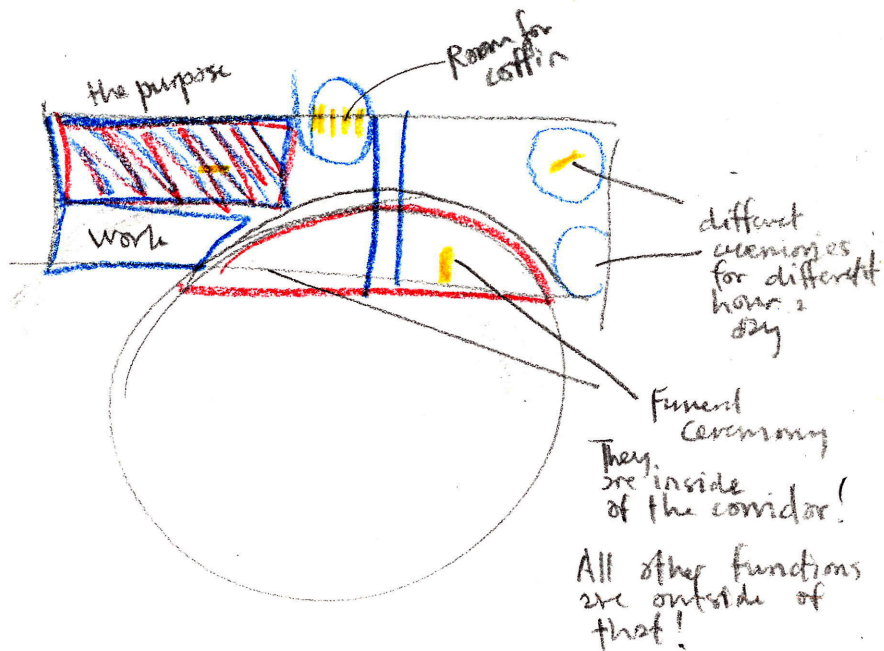 the purpose
Room for
coffin
work
different
ceremonies
for different
hour
day
Funeral
ceremony
They
are inside
of the corridor!
All other functions
are outside of
that!